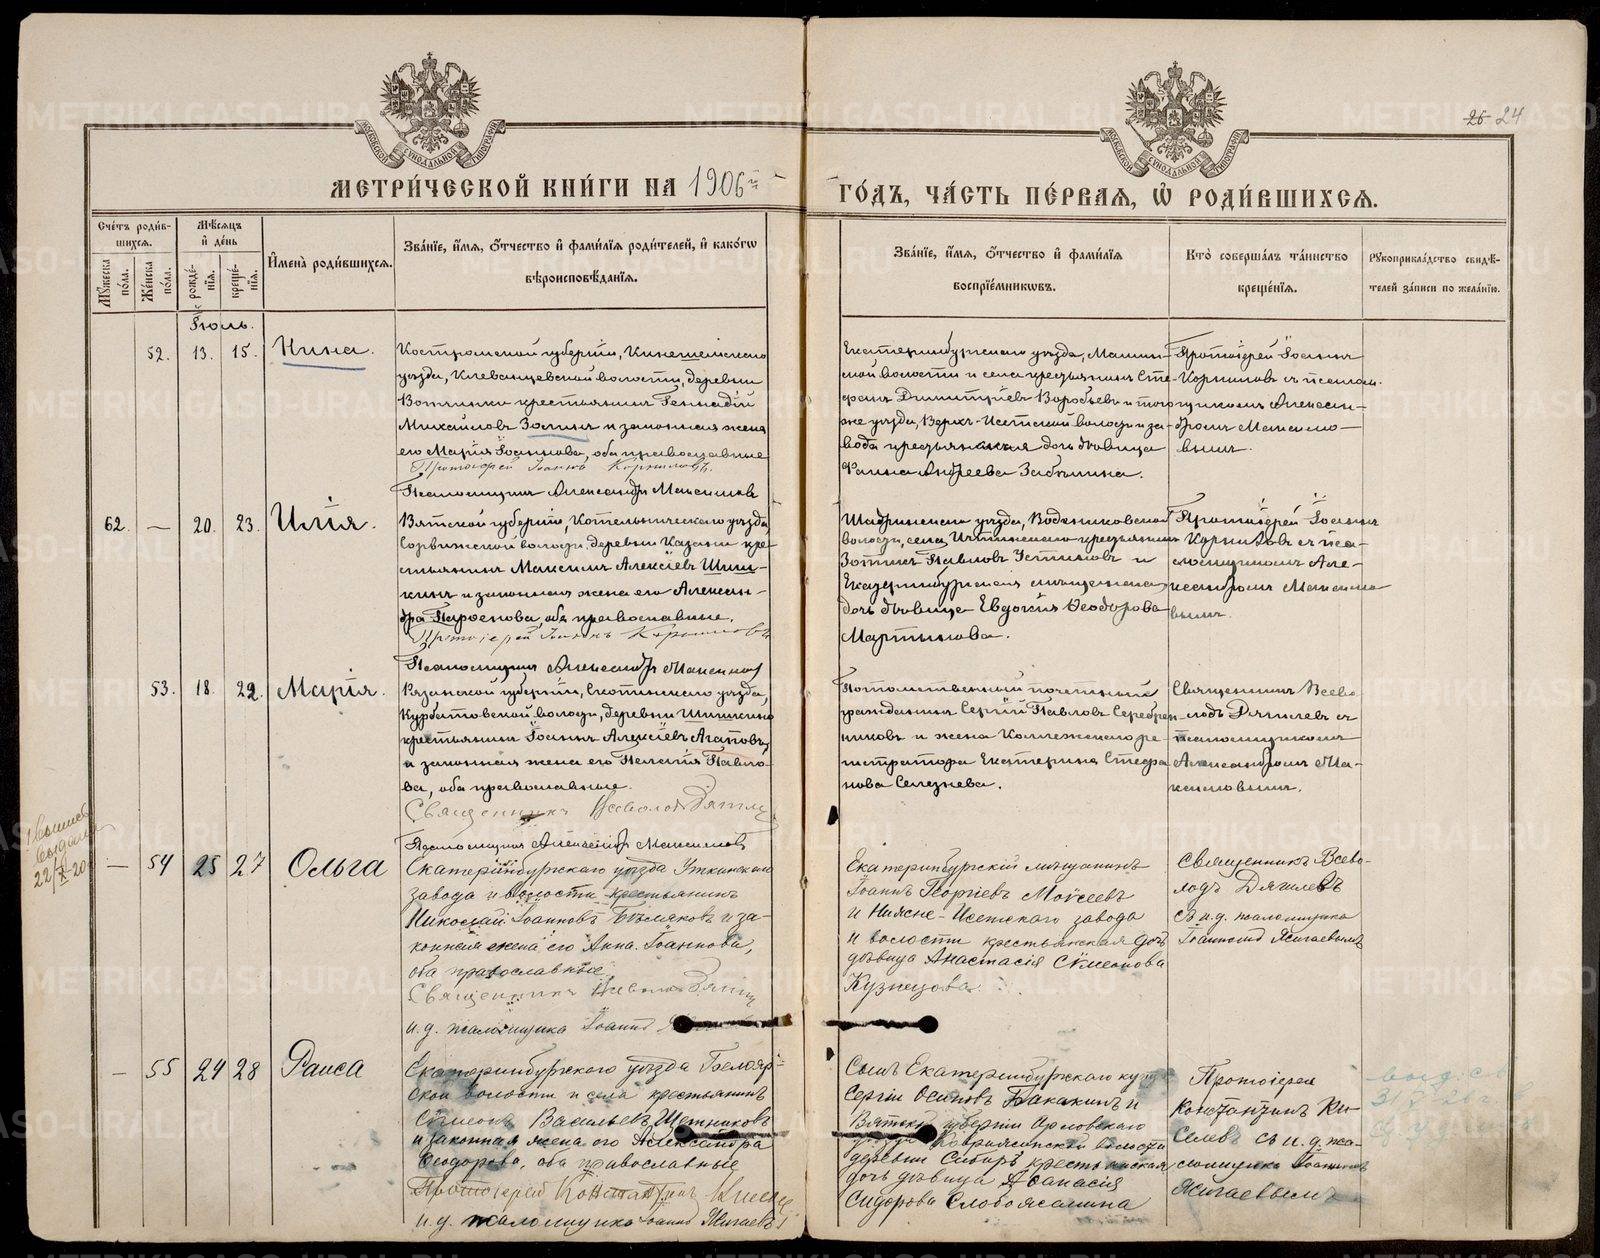 25 24
МЕТРИ́ЧЕСКОЙ КНИ́ГИ НА 1906й
ГО́ДЪ, ЧА́СТЬ ПЕ́РВАЯ, Ѡ РОДИ́ВШИХСЯ.
Сче́тъ роди́в-
шихся.
Му́жеска по́ла.
Же́нска по́ла.
Мѣ́сяцъ
и де́нь
рожде́нїя.
креще́нїя.
Имена̀ роди́вшихся.
Зва́нїе, и́мя, о́тчество и фами́лїя роди́телей, и како́гѡ
вѣроисповѣ́данїя.
Зва́нїе, и́мя, о́тчество и фами́лїя
воспрїе́мникѡвъ.
Кто̀ соверша́лъ та́инство
креще́нїя.
Рукоприкла́дство свидѣ́-
телей за́писи по жела́нїю.
Іюль.
52. 13. 15. Нина.
Костромской губерніи, Кинешемскаго
уѣзда, Клеванцевской волости, деревни
Вотлинки крестьянинъ Геннадій
Михайловъ Зоминъ и законная жена
его Марія Іоаннова, оба православные
Протоіерей Іоаннъ Корниловъ.
Псаломщикъ Александръ Максимовъ
Екатеринбургскаго уѣзда, Мамин-
ской волости и села крестьянинъ Сте-
фанъ Димитріевъ Воробьевъ и того
же уѣзда, Верхъ-Исетской волости и за-
вода крестьянская дочь дѣвица
Фаина Андреева Забѣлина.
Протоіерей Іоаннъ
Корниловъ съ псалом-
щикомъ Александ-
ромъ Максимо-
вымъ.
62. — 20. 23. Илія.
Вятской губерніи, Котельническаго уѣзда,
Сорвижской волости, деревни Казани кре-
стьянинъ Максимъ Алексіевъ Шиш-
кинъ и законная жена его Алексан-
дра Парѳенова, оба православные.
Протоіерей Іоаннъ Корниловъ
Псаломщикъ Александръ Максимовъ
Шадринскаго уѣзда, Водениковской
волости, села крестьянинъ
Зотикъ Павловъ Устиновъ и
Екатеринбургская мѣщанская
дочь дѣвица Евдокія Ѳеодорова
Мартынова.
Протоіерей Іоаннъ
Корниловъ съ пса-
ломщикомъ Але-
ксандромъ Максимо-
вымъ.
53. 18. 22. Марія.
Казанской губерніи, уѣзда,
Курбатовской волости, деревни Шишкино
крестьянинъ Іоаннъ Алексіевъ Агаповъ
и законная жена его Пелагія Павло-
ва, оба православные.
Священникъ Всеволодъ Дягилевъ
Псаломщикъ Александръ Максимовъ
Потомственный почетный
гражданинъ Сергій Павловъ Серебрен-
никовъ и жена Коллежскаго ре-
гистратора Екатерина Стефа-
нова Селезнева.
Священникъ Всево-
лодъ Дягилевъ съ
псаломщикомъ
Александромъ Ма-
ксимовымъ.
Выпись
выдана
22/X-20
— 54 25 27 Ольга
Екатеринбургскаго уѣзда Уткинскаго
завода и волости крестьянинъ
Николай Іоанновъ Бѣляковъ и за-
конная жена его Анна Іоаннова,
оба православные
Священникъ Всеволодъ Дягилевъ
и.д. псаломщика Іоаннъ
Екатеринбургскій мѣщанинъ
Іоаннъ Георгіевъ Моѵсеевъ
и Нижне-Исетскаго завода
и волости крестьянская дочь
дѣвица Анастасія Сѵмеонова
Кузнецова
Священникъ Всево-
лодъ Дягилевъ
съ и.д. псаломщика
Іоанномъ Жигаевымъ
— 55 24 28 Раиса
Екатеринбургскаго уѣзда Белояр-
ской волости и села крестьянинъ
Сѵмеонъ Васильевъ Щетниковъ
и законная жена его Александра
Ѳеодорова, оба православные
Протоіерей Константинъ Киселевъ
и.д. псаломщика Іоаннъ Жигаевъ
Сынъ Екатеринбургскаго купца
Сергій Осиповъ Бакакинъ и
Вятской губерніи Орловскаго
уѣзда волости
деревни Сибирь крестьянская
дочь дѣвица Аѳанасія
Сидорова Слободчикова
Протоіерей
Константинъ Ки-
селевъ съ и.д. пса-
ломщика Іоанномъ
Жигаевымъ
METRIKI.GASO-URAL.RU